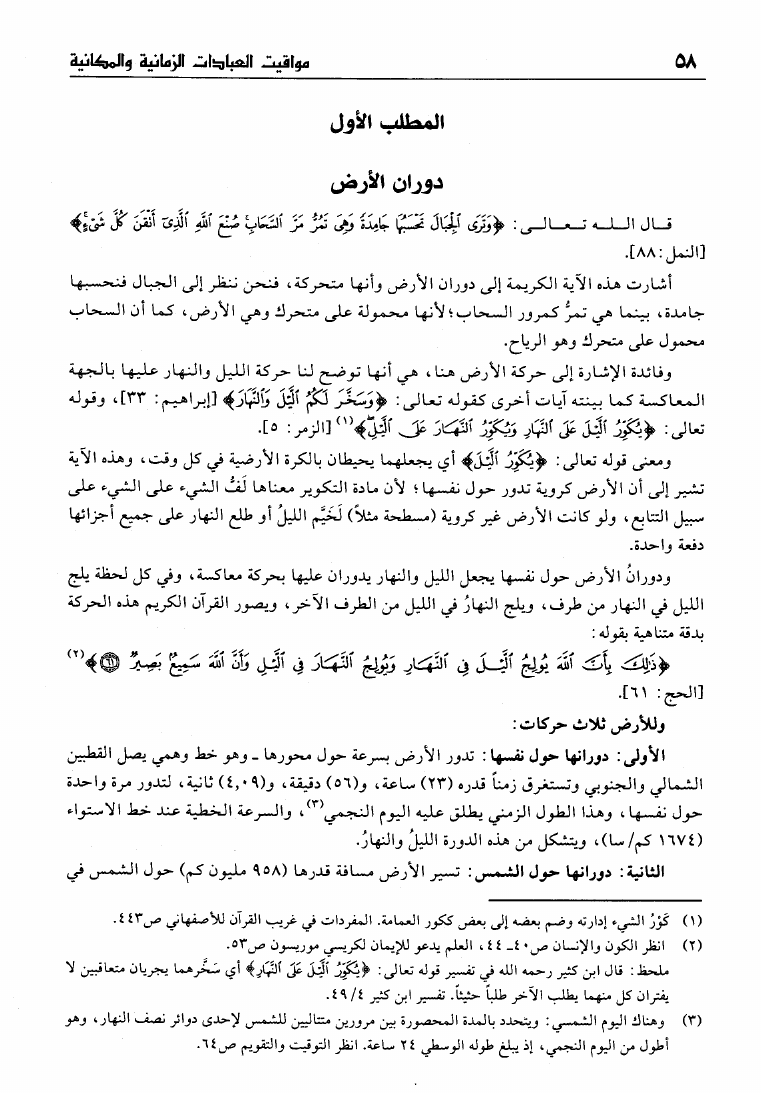 ٥٨
مواقيت العبادات الزمانية والمكانية
المطلب الأول
دوران الأرض
قال اللـه تعـالـى: ﴿وَتَرَى ٱلْجِبَالَ تَحْسَبُهَا جَامِدَةً وَهِىَ تَمُرُّ مَرَّ ٱلسَّحَابِ صُنْعَ ٱللَّهِ ٱلَّذِىٓ أَتْقَنَ كُلَّ شَىْءٍ﴾
[النمل: ٨٨].
أشارت هذه الآية الكريمة إلى دوران الأرض وأنها متحركة، فنحن ننظر إلى الجبال فنحسبها
جامدة، بينما هي تمرُّ كمرور السحاب؛ لأنها محمولة على متحرك وهي الأرض، كما أن السحاب
محمول على متحرك وهو الرياح.
وفائدة الإشارة إلى حركة الأرض هنا، هي أنها توضح لنا حركة الليل والنهار عليها بالجهة
المعاكسة كما بينته آيات أخرى كقوله تعالى: ﴿وَسَخَّرَ لَكُمُ ٱلَّيْلَ وَٱلنَّهَارَ﴾ [إبراهيم: ٣٣]، وقوله
تعالى: ﴿يُكَوِّرُ ٱلَّيْلَ عَلَى ٱلنَّهَارِ وَيُكَوِّرُ ٱلنَّهَارَ عَلَى ٱلَّيْلِ﴾(١) [الزمر: ٥].
ومعنى قوله تعالى: ﴿يُكَوِّرُ ٱلَّيْلَ﴾ أي يجعلهما يحيطان بالكرة الأرضية في كل وقت، وهذه الآية
تشير إلى أن الأرض كروية تدور حول نفسها؛ لأن مادة التكوير معناها لَفُّ الشيء على الشيء على
سبيل التتابع، ولو كانت الأرض غير كروية (مسطحة مثلاً) لَخَيَّم الليلُ أو طلع النهار على جميع أجزائها
دفعة واحدة.
ودورانُ الأرض حول نفسها يجعل الليل والنهار يدوران عليها بحركة معاكسة، وفي كل لحظة يلج
الليل في النهار من طرف، ويلج النهارُ في الليل من الطرف الآخر، ويصور القرآن الكريم هذه الحركة
بدقة متناهية بقوله:
﴿ذَٰلِكَ بِأَنَّ ٱللَّهَ يُولِجُ ٱلَّيْلَ فِى ٱلنَّهَارِ وَيُولِجُ ٱلنَّهَارَ فِى ٱلَّيْلِ وَأَنَّ ٱللَّهَ سَمِيعٌۢ بَصِيرٌ ۝٦١﴾(٢)
[الحج: ٦١].
وللأرض ثلاث حركات:
الأولى: دورانها حول نفسها: تدور الأرض بسرعة حول محورها ـ وهو خط وهمي يصل القطبين
الشمالي والجنوبي وتستغرق زمناً قدره (٢٣) ساعة، و(٥٦) دقيقة، و(٤,٠٩) ثانية، لتدور مرة واحدة
حول نفسها، وهذا الطول الزمني يطلق عليه اليوم النجمي(٣)، والسرعة الخطية عند خط الاستواء
(١٦٧٤ كم/سا)، ويتشكل من هذه الدورة الليلُ والنهارُ.
الثانية: دورانها حول الشمس: تسير الأرض مسافة قدرها (٩٥٨ مليون كم) حول الشمس في
(١) كَوْرُ الشيء إدارته وضم بعضه إلى بعض ككور العمامة. المفردات في غريب القرآن للأصفهاني ص٤٤٣.
(٢) انظر الكون والإنسان ص٤٠ـ ٤٤، العلم يدعو للإيمان لكريسي موريسون ص٥٣.
ملحظ: قال ابن كثير رحمه الله في تفسير قوله تعالى: ﴿يُكَوِّرُ ٱلَّيْلَ عَلَى ٱلنَّهَارِ﴾ أي سَخَّرهما يجريان متعاقبين لا
يفتران كل منهما يطلب الآخر طلباً حثيثاً. تفسير ابن كثير ٤/ ٤٩.
(٣) وهناك اليوم الشمسي: ويتحدد بالمدة المحصورة بين مرورين متتاليين للشمس لإحدى دوائر نصف النهار، وهو
أطول من اليوم النجمي، إذ يبلغ طوله الوسطي ٢٤ ساعة. انظر التوقيت والتقويم ص٦٤.